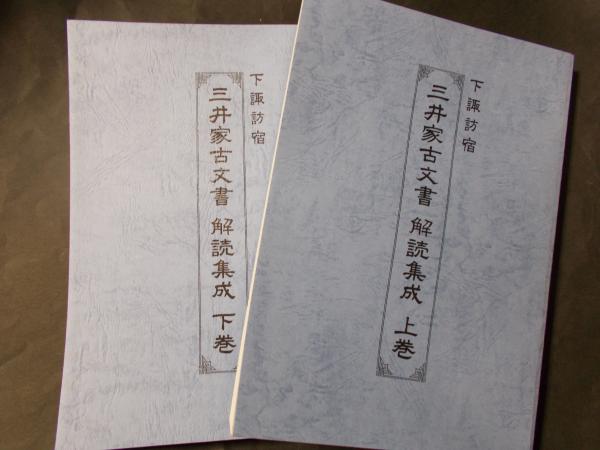 下諏訪宿
三井家古文書 解読集成 上巻
下諏訪宿
三井家古文書 解読集成 下巻